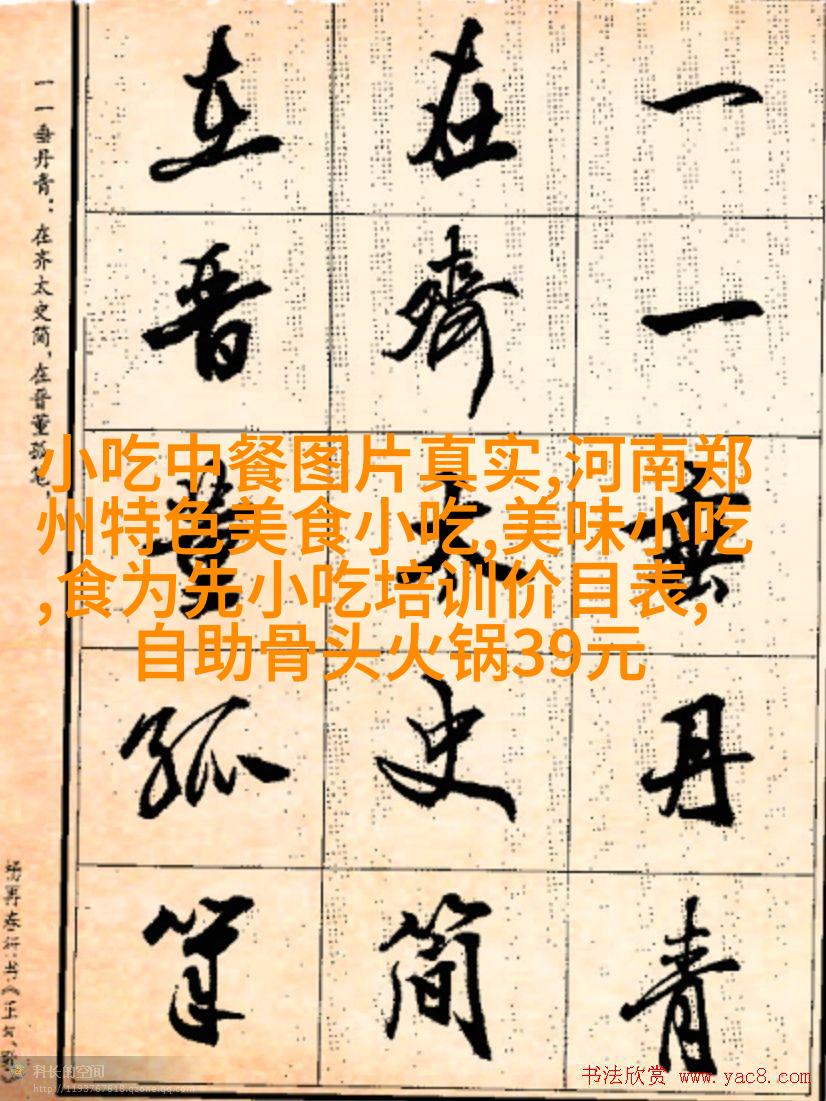 一一垂丹青
在齊太史简
在晋董孤筆
一一垂丹青：在齐太史简，在晋董孤笔
杨再春行书《正气歌》
小吃中餐图片真实,河南郑
州特色美食小吃,美味小吃
,食为先小吃培训价目表,
自助骨头火锅39元
科长的空间
http://1193767618.qzone.qq.com
书法欣赏 www.yac8.com